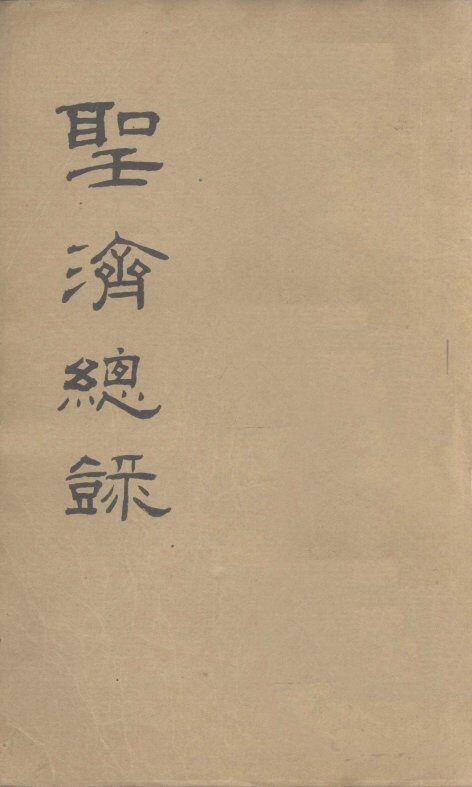 聖濟總錄